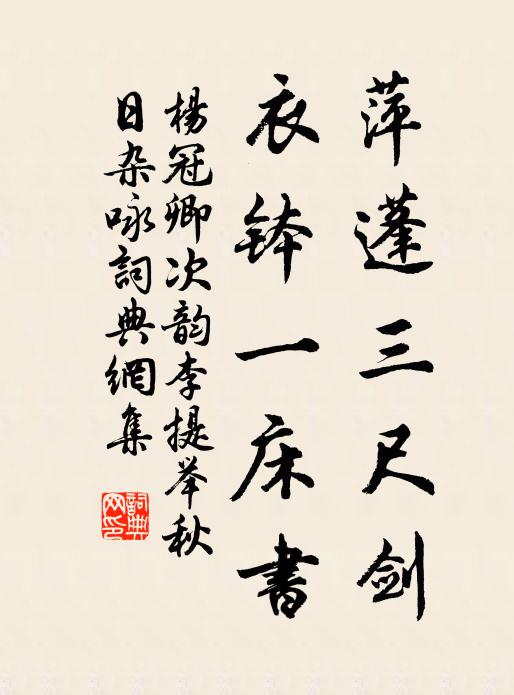 萍蓬三尺剑
衣钵一床書
楊冠卿次韵李提举秋
日杂咏詞典網集
詞典網印